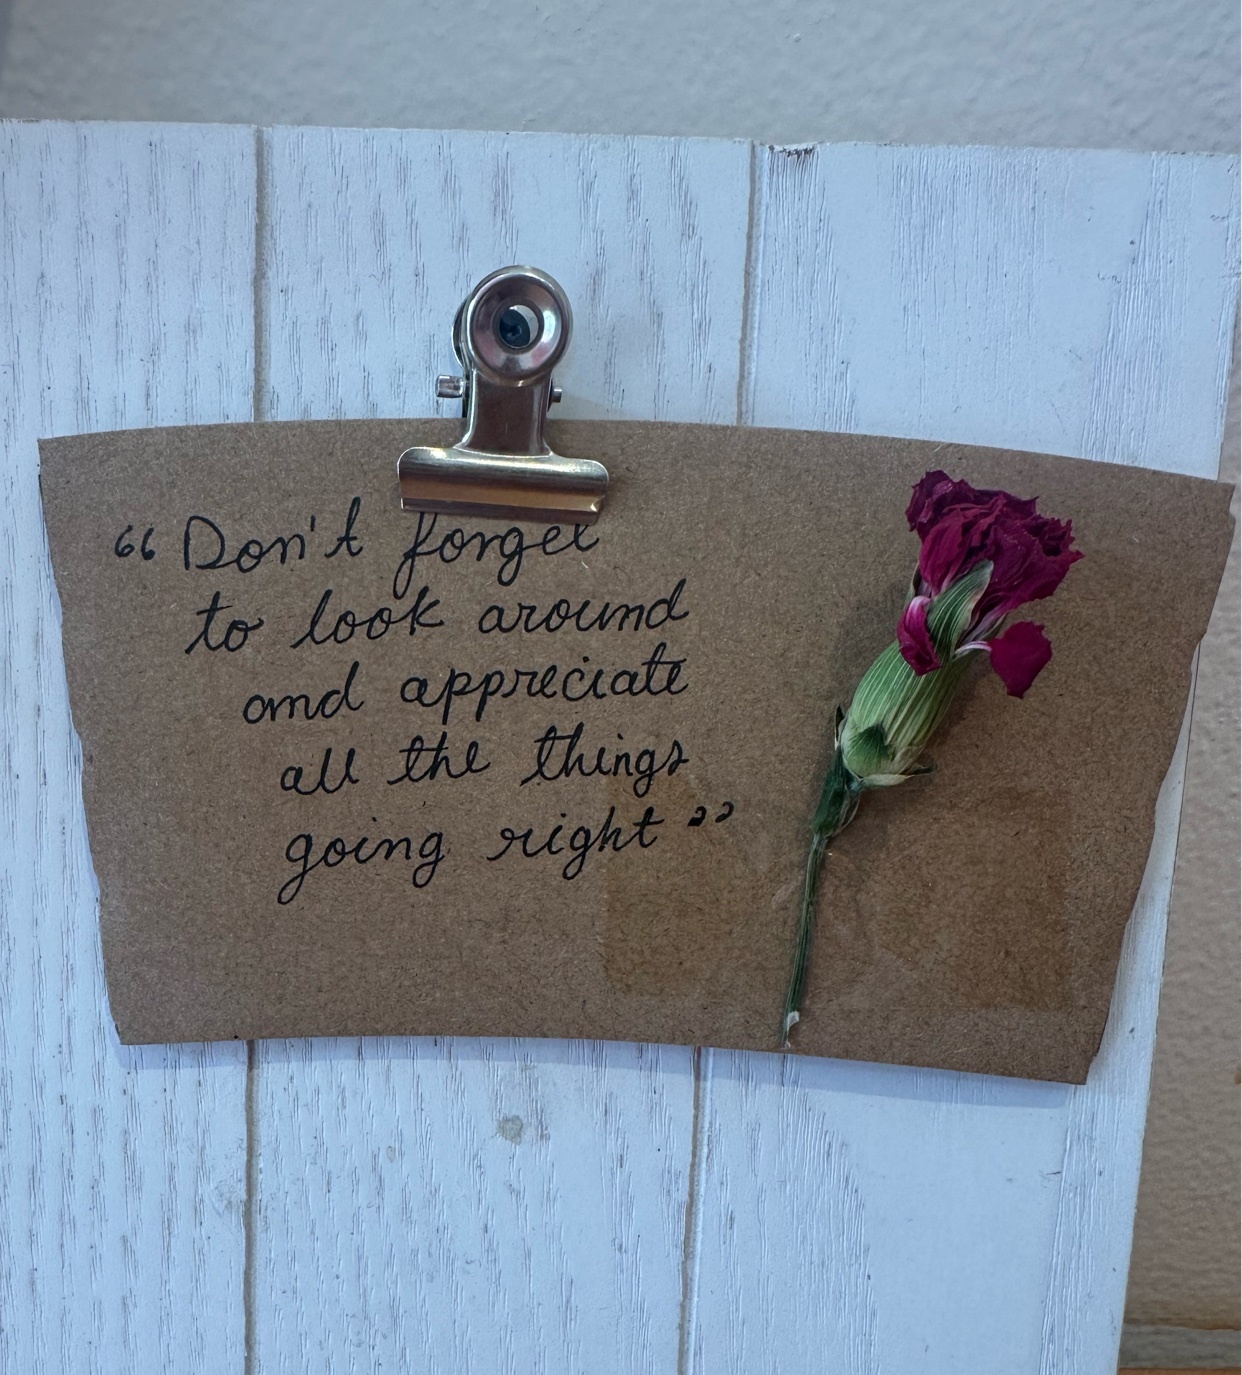 “Don't forget
to look around
and appreciate
all the things
going right”